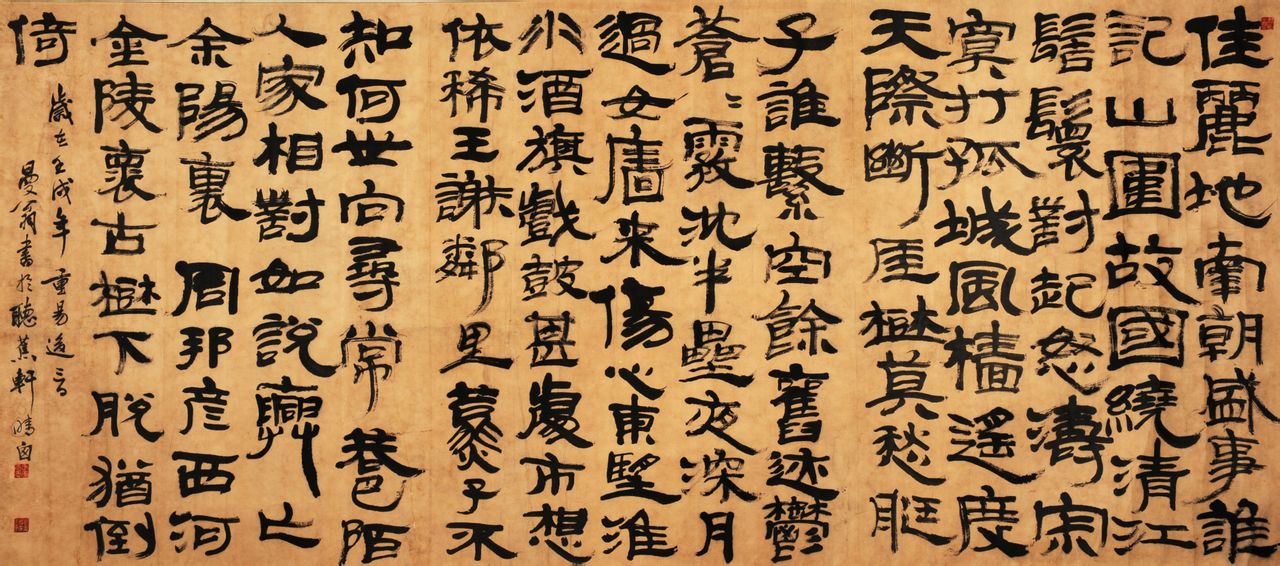 佳麗地南朝盛事誰
記山圍故國繞清江
髻鬟對起怒濤宗
寞打孤城風檣遥度
天際斷厓樹莫愁艇
子誰繫空餘舊迹鬱
蒼〻霧沈半壘夜深月
過女牆来傷心東望淮
水酒旗戲鼓甚處市想
依稀王謝鄰里燕子不
知何世向尋常巷陌
人家相對如說興亡
余陽裏 周邦彦西河
金陵褱古樹下脫猶倒
倚
歲在壬戌年重昜後三日
曼翁書於聽蕉軒晴窗